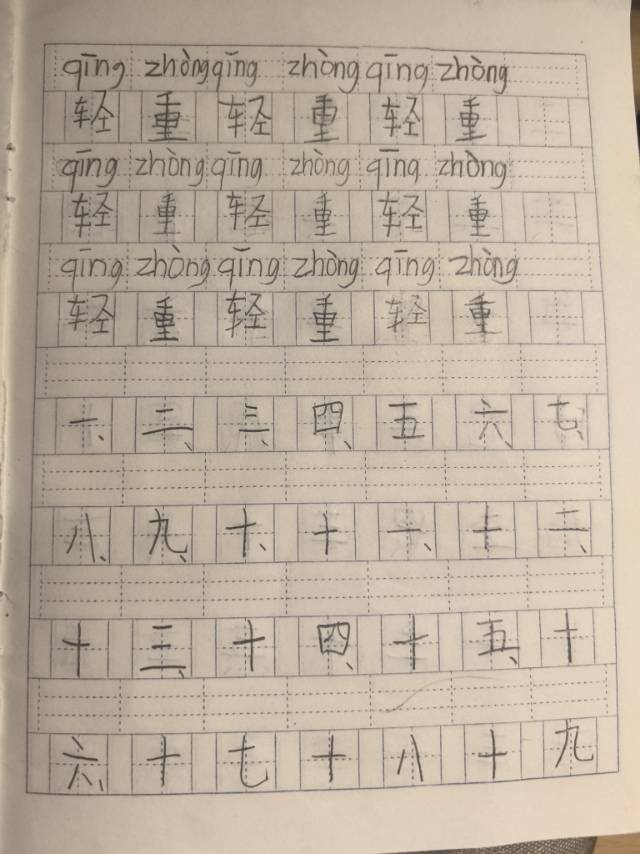 qīng zhòng qīng zhòng qīng zhòng
轻重轻重轻重
qīng zhòng qīng zhòng qīng zhòng
轻重轻重轻重
qīng zhòng qīng zhòng qīng zhòng
轻重轻重轻重
一、二、三、四、五六、七、
八、九、十、十一、十二、
十三、十四、十五、十
六、十七十八十九